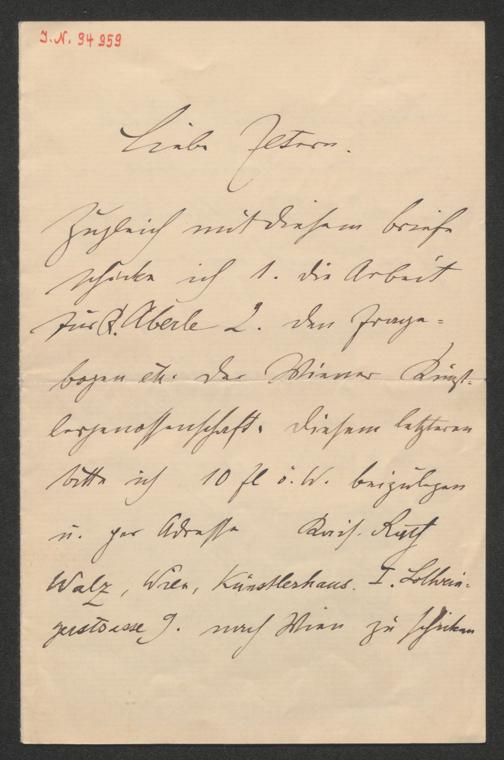 I.N. 94959
Liebe Eltern.
Zugleich mit diesem Briefe
schicke ich 1. die Arbeit
für Aberle 2. den Frage-
bogen etc. der Wiener Künst-
lergenossenschaft. Diesem letzteren
bitte ich 10 fl ö.W. beizulegen
u. per Adresse Kais. Rath
Walz, Wien, Künstlerhaus. I. Lothrin-
gerstrasse 9. nach Wien zu schicken